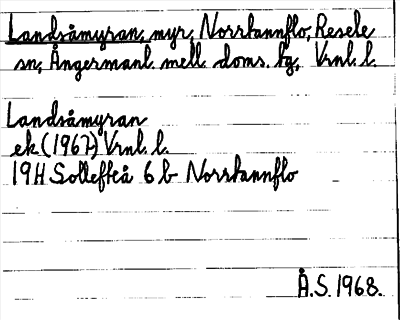 Landsåmyran, myr, Norrtannflo, Resele
sn, Ångermanl. mell. doms. bg, Vrnl. l.
Landsåmyran
ek (1967) Vrnl. l.
19H Sollefteå 6 b Norrtannflo
Å.S. 1968.